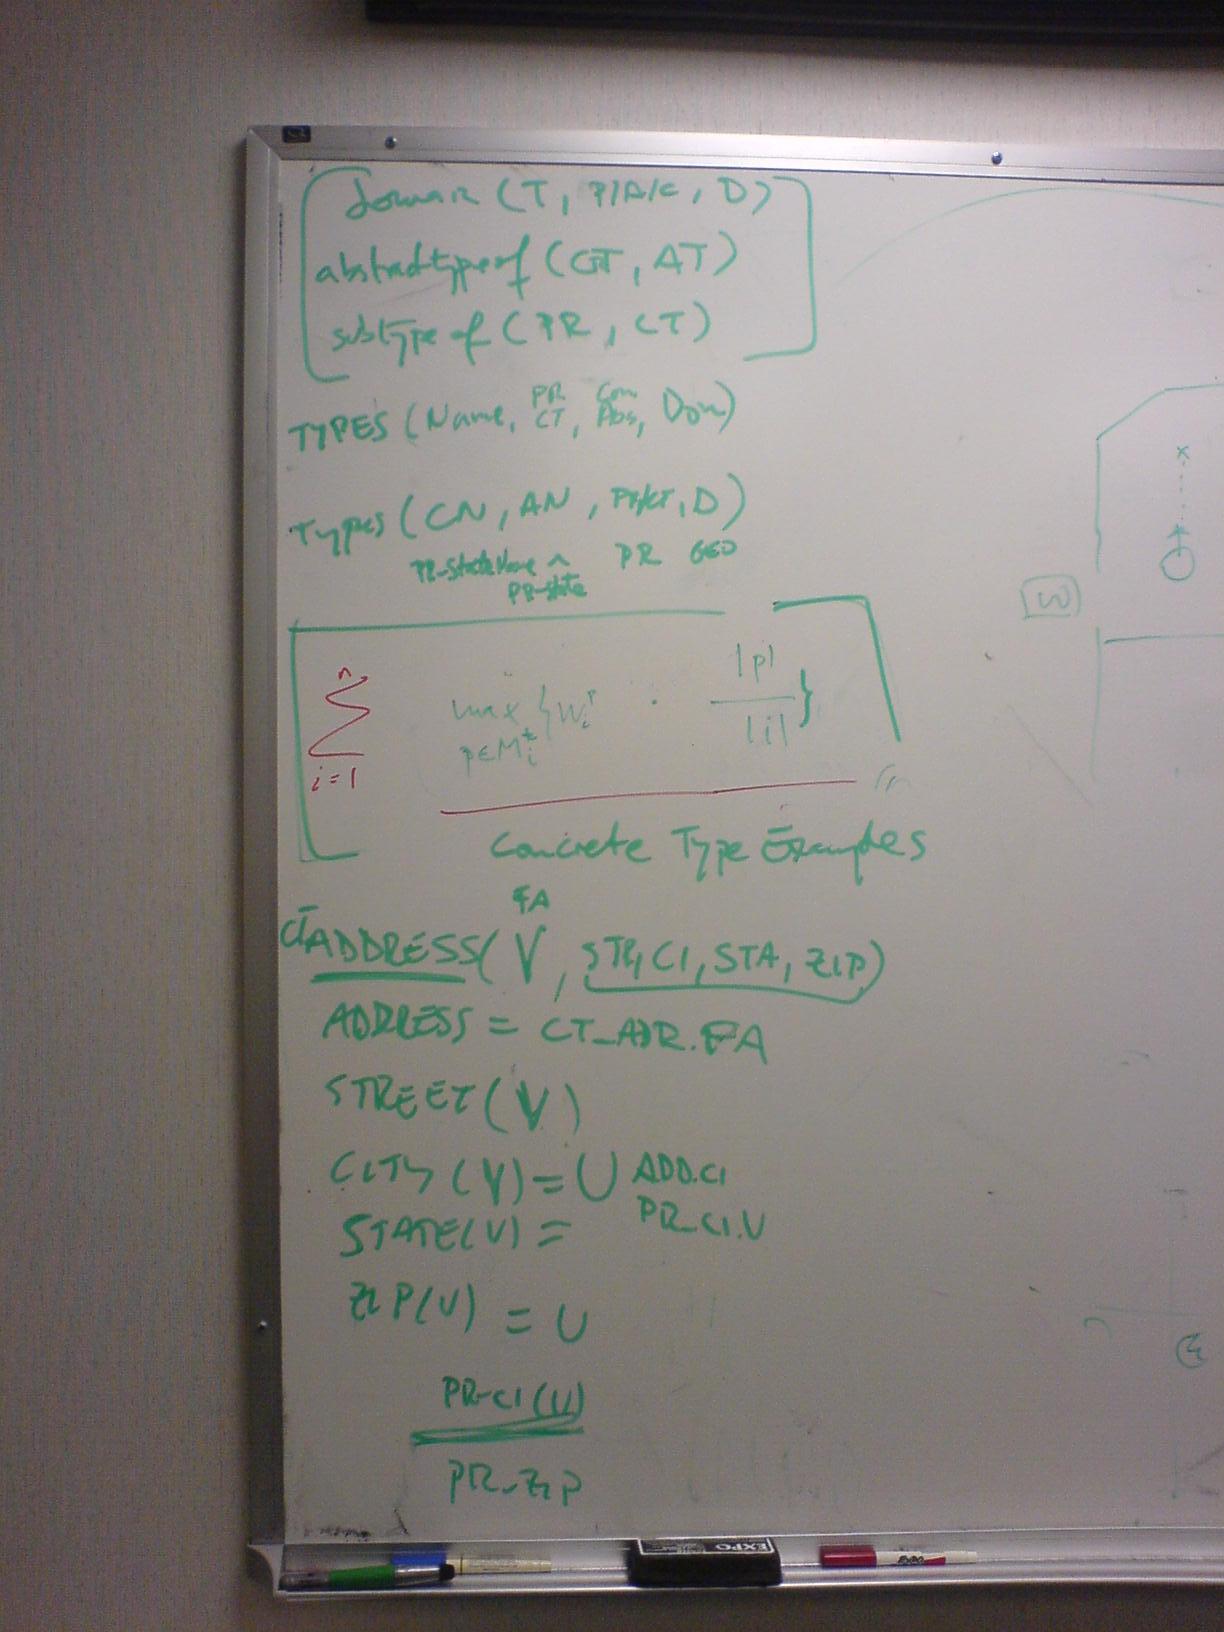 domain (T, P/A/C, D)
abstracttypeof (CT, AT)
subtype of (PR, CT)
TYPES (Name, PR CT, Con Abs, Dom)
Types (CN, AN, PR/CT, D)
PR-StateName PR GEO
PR-state
n
∑ max { Wᵢᵖ · |p| / |i| }
i=1 p∈Mᵢᵗ
Concrete Type Examples
FA
CT ADDRESS (V, STR, CI, STA, ZIP)
ADDRESS = CT_ADR.FA
STREET (V)
CITY (V) = U ADD.CI
PR_CI.V
STATE (V) =
ZIP (V) = U
PR-CI (V)
PR_ZIP
W
EXPO
EXPO